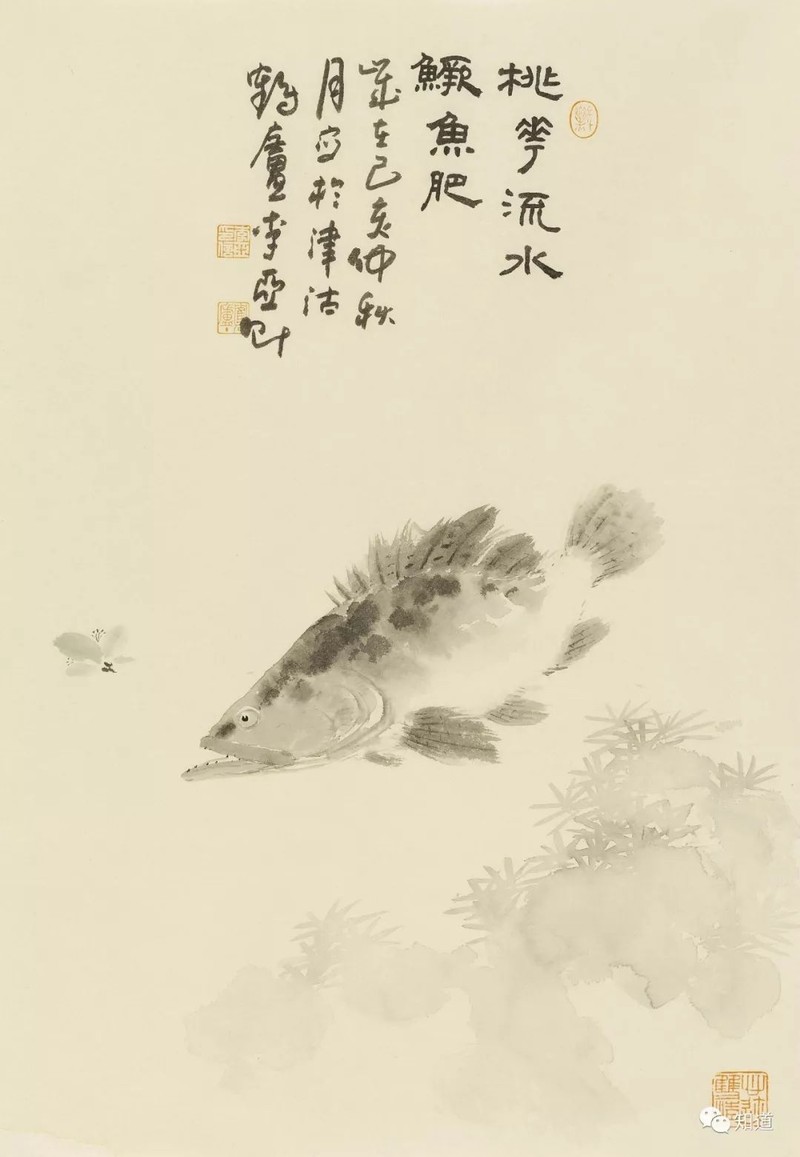 桃華流水
鱖魚肥
歲在己亥仲秋
月写於津沽
鶴廬李亞
知道